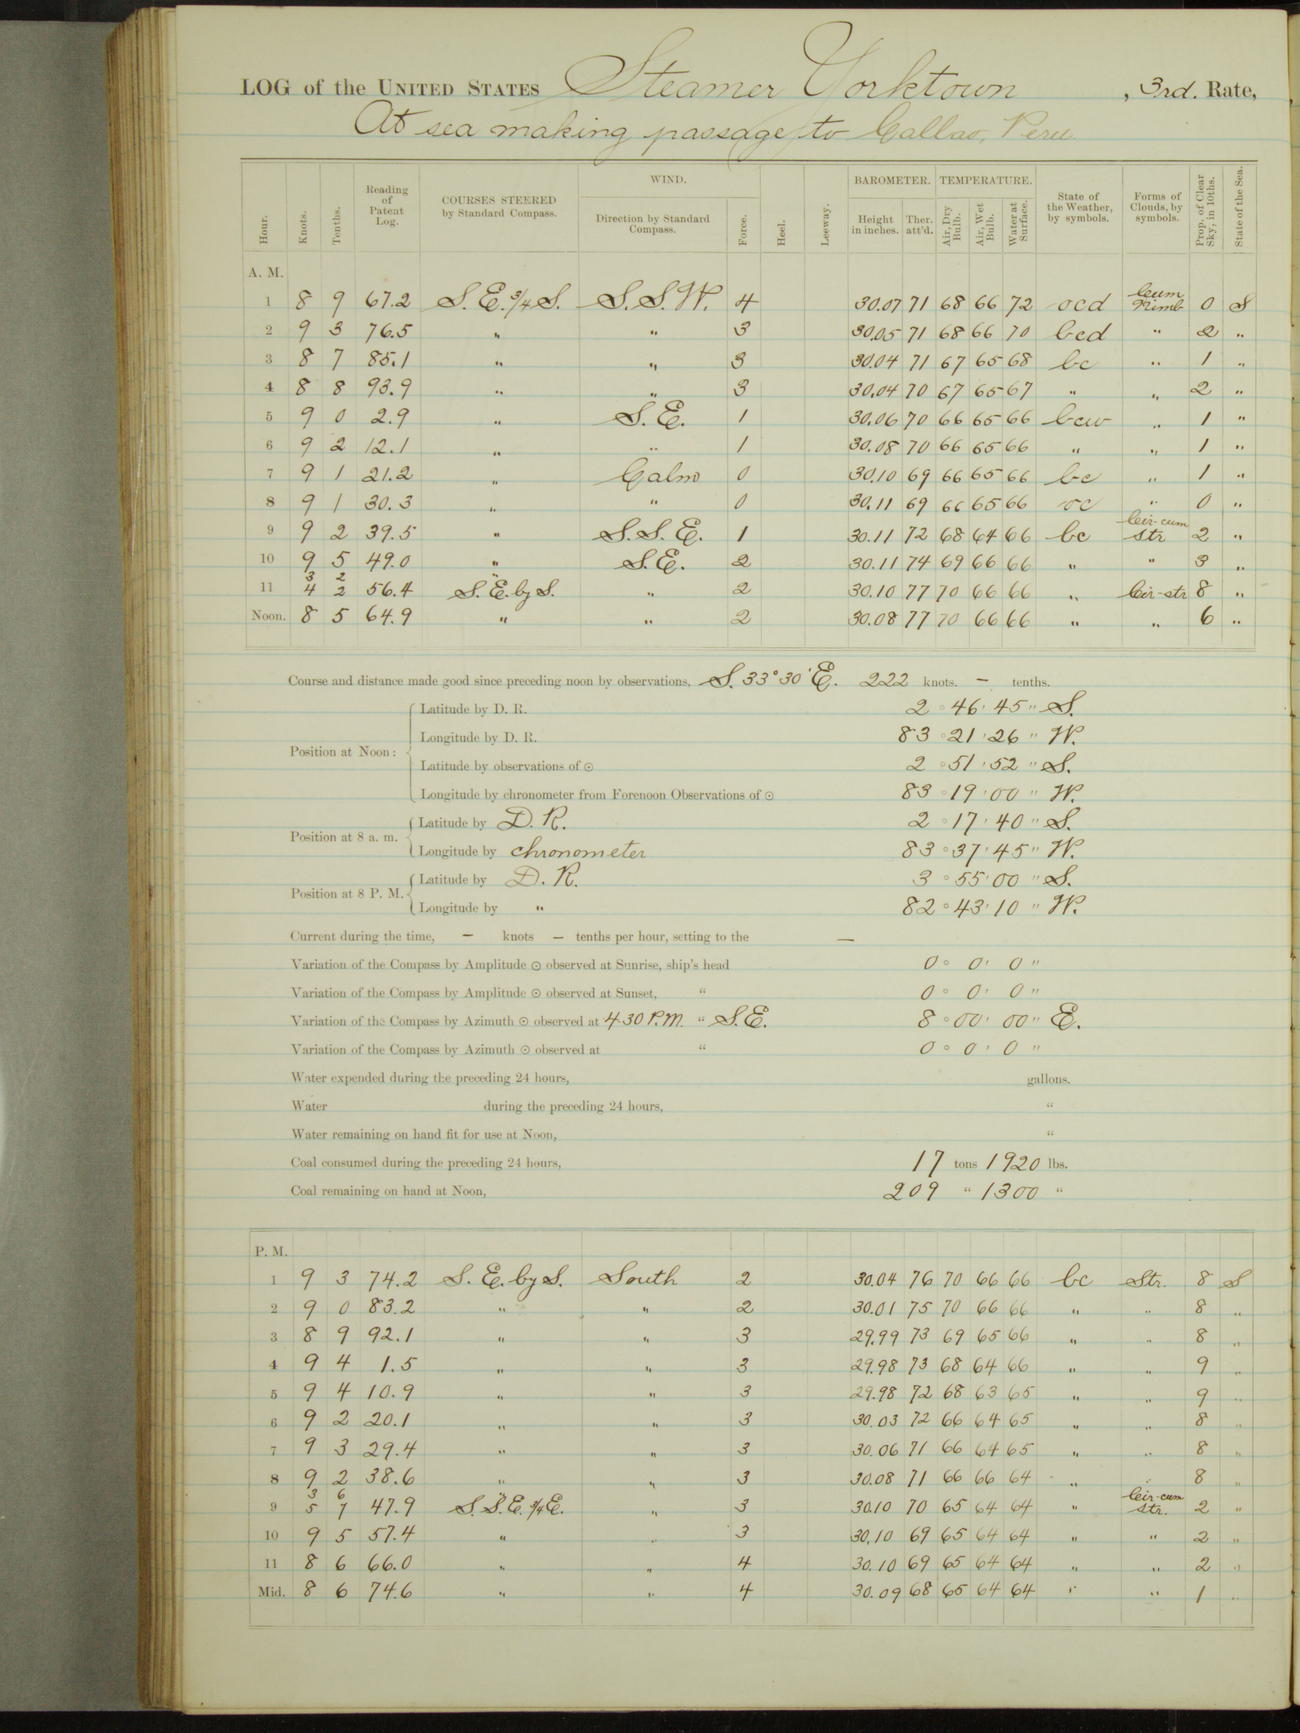 LOG of the UNITED STATES Steamer Yorktown, 3rd. Rate,
At sea making passage to Callao, Peru
Hour. Knots. Tenths. Reading of Patent Log. COURSES STEERED by Standard Compass. WIND. Direction by Standard Compass. Force. Heel. Leeway. BAROMETER. Height in inches. Ther. att'd. TEMPERATURE. Air, Dry Bulb. Air, Wet Bulb. Water at Surface. State of the Weather, by symbols. Forms of Clouds, by symbols. Prop. of Clear Sky, in 10ths. State of the Sea.
A. M.
1 8 9 67.2 S. E. 3/4 S. S. S. W. 4 30.07 71 68 66 72 ocd Cum Nimb 0 S
2 9 3 76.5 " " 3 30.05 71 68 66 70 bcd " 2 "
3 8 7 85.1 " " 3 30.04 71 67 65 68 bc " 1 "
4 8 8 93.9 " " 3 30.04 70 67 65 67 " " 2 "
5 9 0 2.9 " S. E. 1 30.06 70 66 65 66 bcw " 1 "
6 9 2 12.1 " " 1 30.08 70 66 65 66 " " 1 "
7 9 1 21.2 " Calm 0 30.10 69 66 65 66 bc " 1 "
8 9 1 30.3 " " 0 30.11 69 66 65 66 oc " 0 "
9 9 2 39.5 " S. S. E. 1 30.11 72 68 64 66 bc Cir-cum str 2 "
10 9 5 49.0 " S. E. 2 30.11 74 69 66 66 " " 3 "
3 2 "
11 4 2 56.4 S. E. by S. " 2 30.10 77 70 66 66 " Cir-str 8 "
Noon. 8 5 64.9 " " 2 30.08 77 70 66 66 " " 6 "
Course and distance made good since preceding noon by observations, S. 33° 30' E. 222 knots. — tenths.
Position at Noon:
Latitude by D. R. 2 ° 46 ' 45 " S.
Longitude by D. R. 83 ° 21 ' 26 " W.
Latitude by observations of ☉ 2 ° 51 ' 52 " S.
Longitude by chronometer from Forenoon Observations of ☉ 83 ° 19 ' 00 " W.
Position at 8 a. m.
Latitude by D. R. 2 ° 17 ' 40 " S.
Longitude by chronometer 83 ° 37 ' 45 " W.
Position at 8 P. M.
Latitude by D. R. 3 ° 55 ' 00 " S.
Longitude by " 82 ° 43 ' 10 " W.
Current during the time, — knots — tenths per hour, setting to the —
Variation of the Compass by Amplitude ☉ observed at Sunrise, ship's head 0 ° 0 ' 0 "
Variation of the Compass by Amplitude ☉ observed at Sunset, " 0 ° 0 ' 0 "
Variation of the Compass by Azimuth ☉ observed at 4 30 P.M. " S. E. 8 ° 00 ' 00 " E.
Variation of the Compass by Azimuth ☉ observed at " 0 ° 0 ' 0 "
Water expended during the preceding 24 hours, gallons.
Water during the preceding 24 hours, "
Water remaining on hand fit for use at Noon, "
Coal consumed during the preceding 24 hours, 17 tons 1920 lbs.
Coal remaining on hand at Noon, 209 " 1300 "
P. M.
1 9 3 74.2 S. E. by S. South 2 30.04 76 70 66 66 bc Str. 8 S
2 9 0 83.2 " " 2 30.01 75 70 66 66 " " 8 "
3 8 9 92.1 " " 3 29.99 73 69 65 66 " " 8 "
4 9 4 1.5 " " 3 29.98 73 68 64 66 " " 9 "
5 9 4 10.9 " " 3 29.98 72 68 63 65 " " 9 "
6 9 2 20.1 " " 3 30.03 72 66 64 65 " " 8 "
7 9 3 29.4 " " 3 30.06 71 66 64 65 " " 8 "
8 9 2 38.6 " " 3 30.08 71 66 66 64 " " 8 "
3 6 "
9 5 7 47.9 S. S. E. 3/4 E. " 3 30.10 70 65 64 64 " Cir-cum str. 2 "
10 9 5 57.4 " " 3 30.10 69 65 64 64 " " 2 "
11 8 6 66.0 " " 4 30.10 69 65 64 64 " " 2 "
Mid. 8 6 74.6 " " 4 30.09 68 65 64 64 " " 1 "